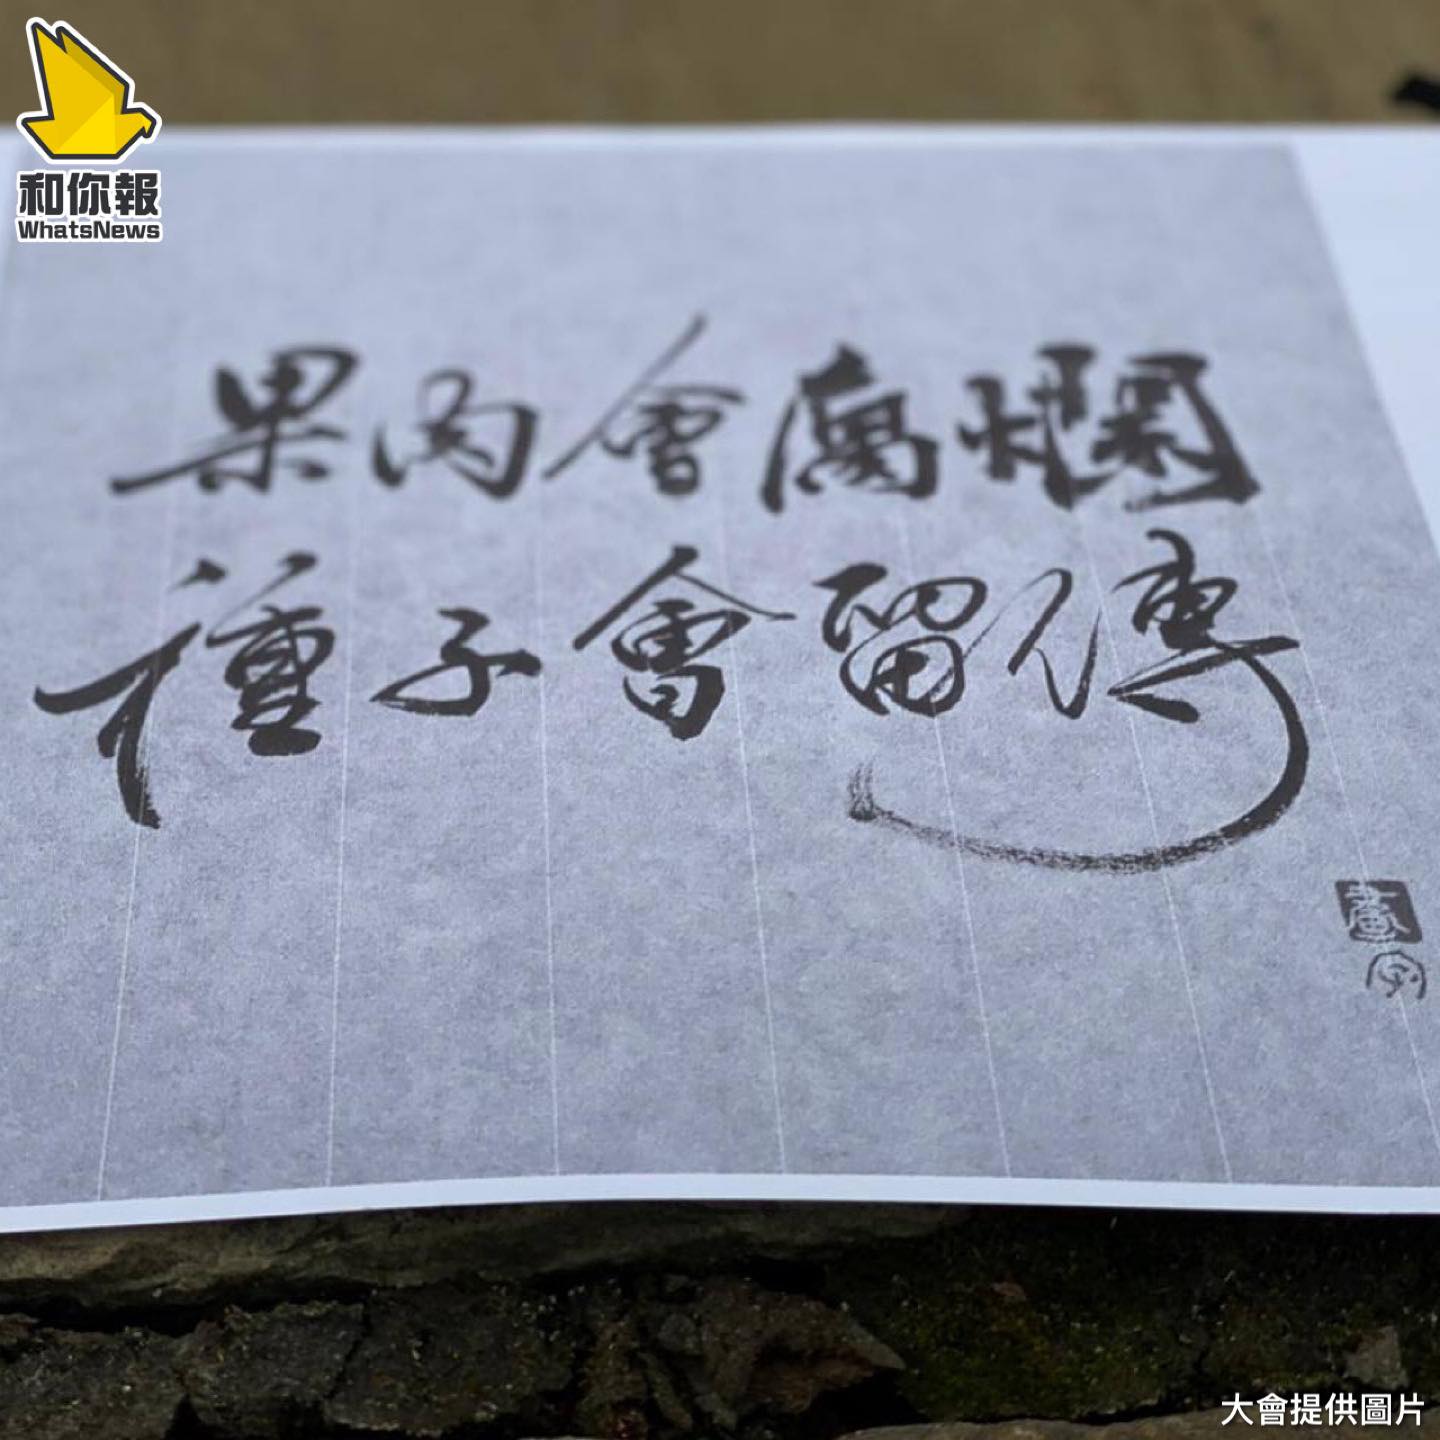 和你報
WhatsNews
果肉會腐爛
種子會留傳
大會提供圖片